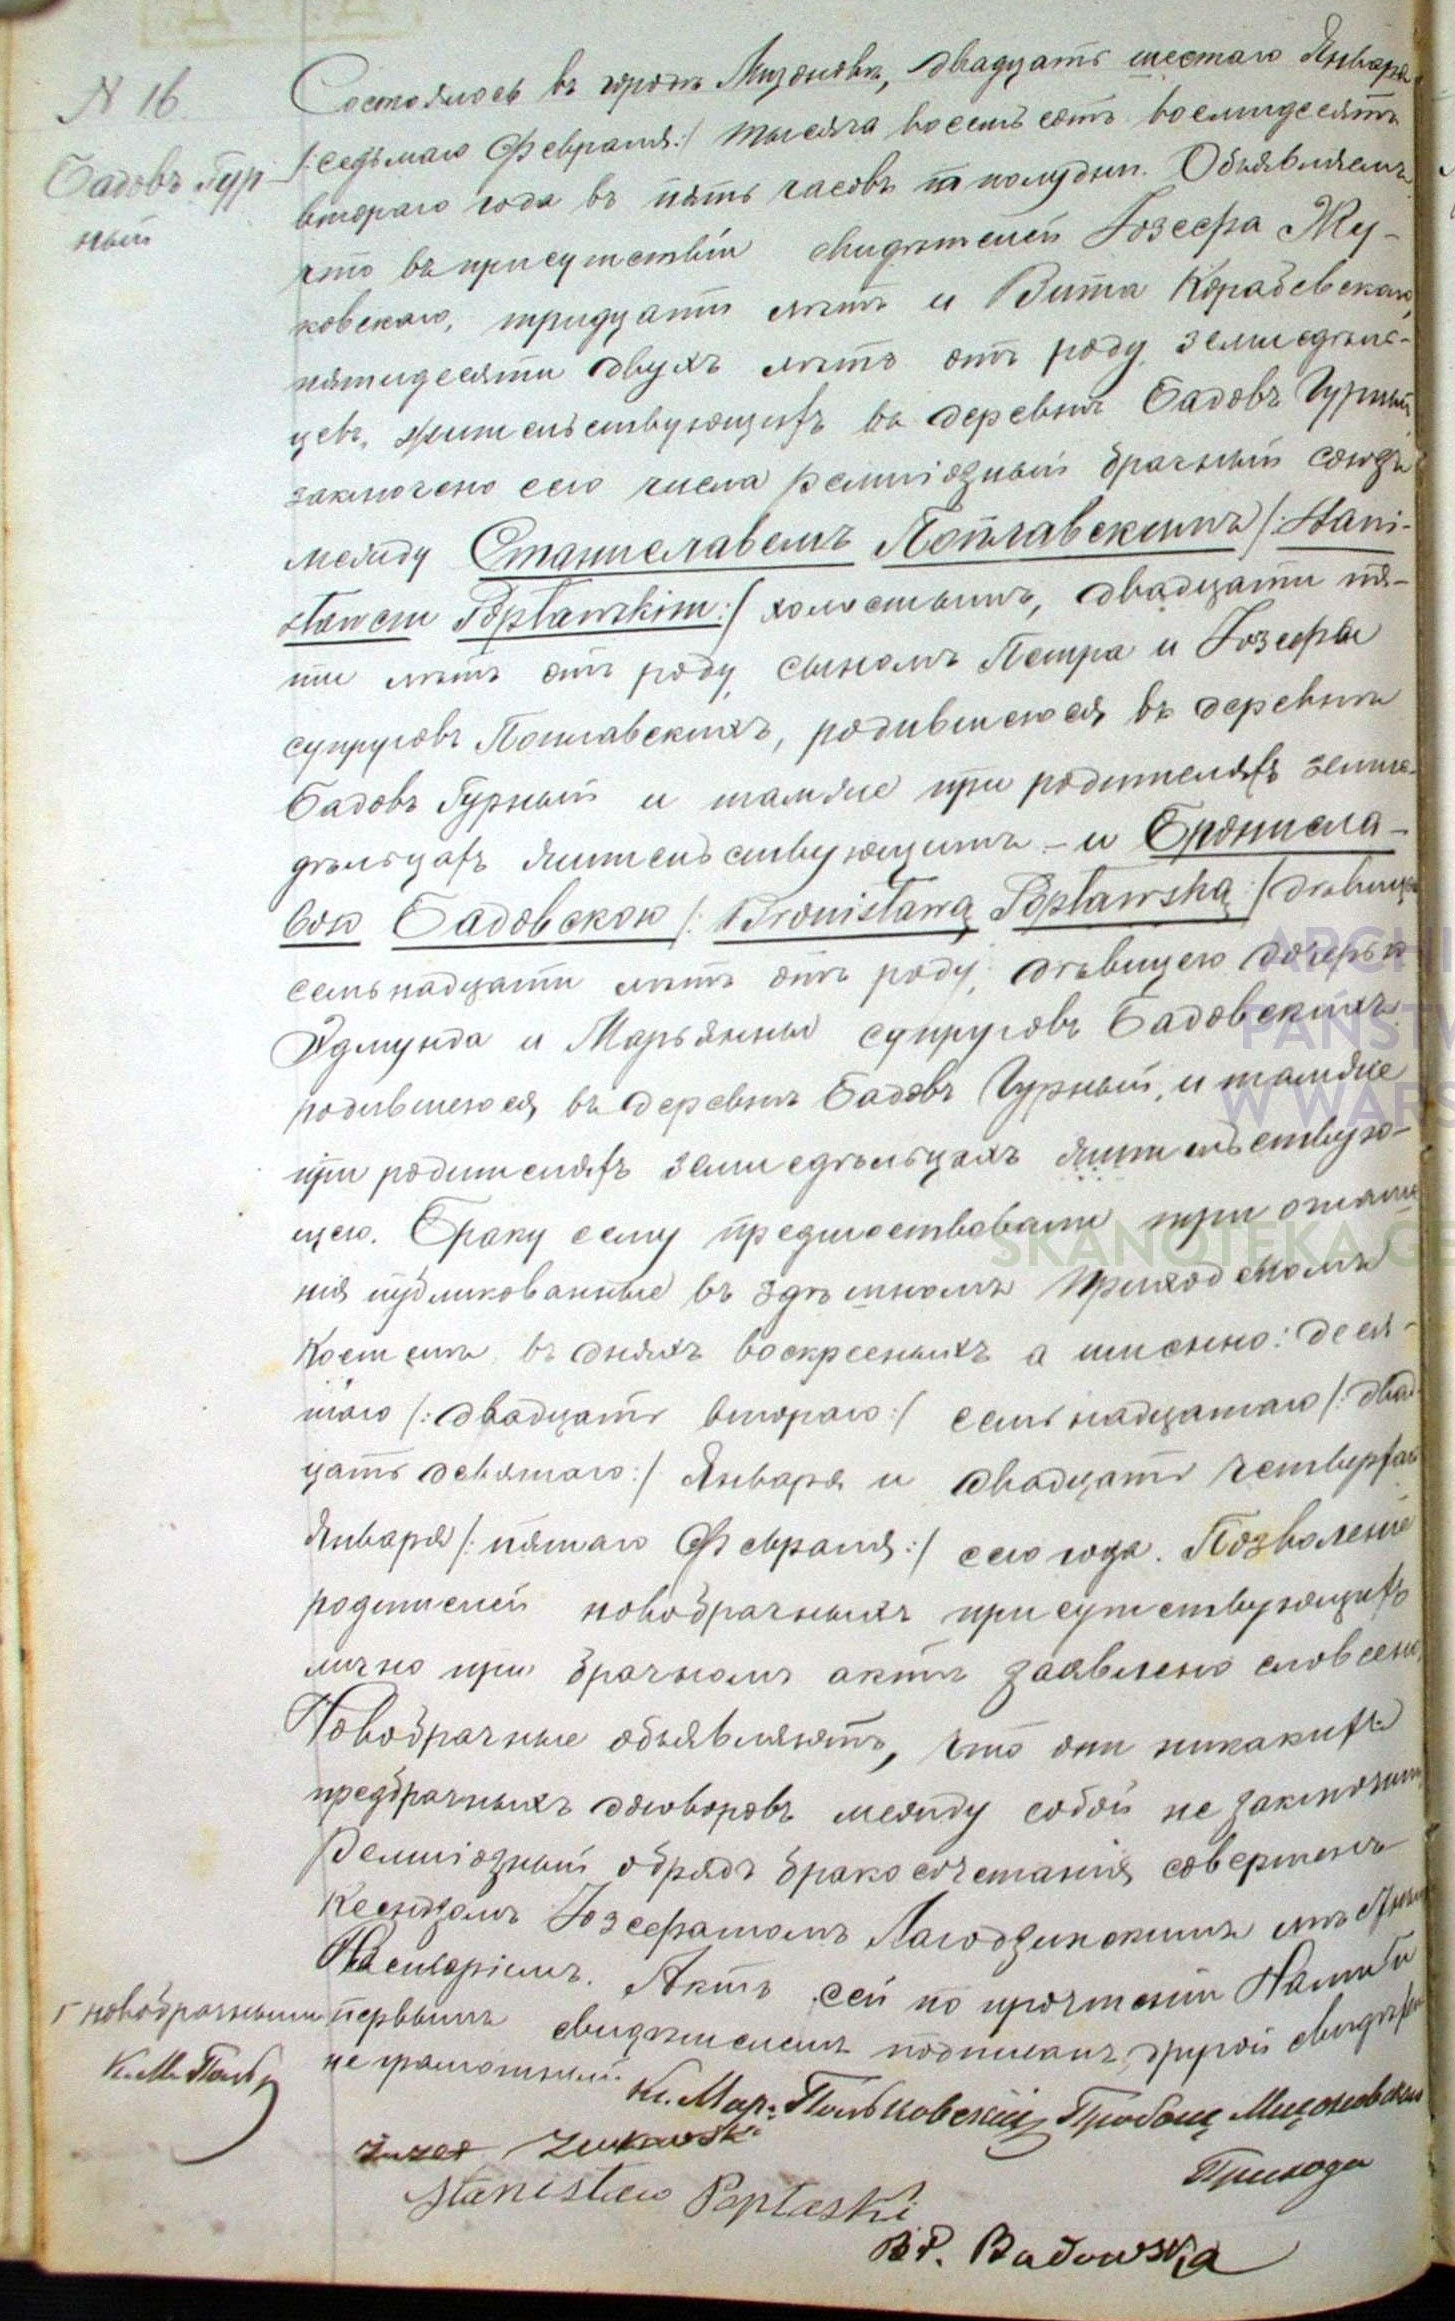 N 16.
Бадовъ Гур-
ный
Состоялось въ городѣ Мщоновѣ, двадцать шестаго Января
/:седьмаго Февраля:/ тысяча восемь сотъ восемьдесятъ
втораго года въ пять часовъ по полудни. Объявляемъ
что въ присутствіи свидѣтелей Іозефа Жу-
ковскаго, тридцати лѣтъ и Вита Корабевскаго,
пятидесяти двухъ лѣтъ отъ роду, земледѣль-
цевъ, жительствующихъ въ деревнѣ Бадовъ Гурный
заключено сего числа религіозный брачный союзъ
между Станиславомъ Поплавскимъ /:Stani-
sławem Popławskim:/ холостымъ, двадцати пя-
ти лѣтъ отъ роду, сыномъ Петра и Іозефы
супруговъ Поплавскихъ, родившегося въ деревнѣ
Бадовъ Гурный и тамже при родителяхъ земле-
дѣльцахъ жительствующимъ – и Брониcла-
вою Бадовскою /:Bronisławą Popławską:/ дѣвицею
семьнадцати лѣтъ отъ роду, дѣвицею дочерью
Эдмунда и Марьянны супруговъ Бадовскихъ
родившеюся въ деревнѣ Бадовъ Гурный, и тамже
при родителяхъ земледѣльцахъ жительствую-
щею. Браку сему предшествовали три оглаше
нія публикованные въ здѣшномъ приходскомъ
Костелѣ въ дняхъ воскресныхъ а именно: деся-
таго /:двадцать втораго:/ семьнадцатаго /:двад-
цать девятаго:/ Января и двадцать четвертаго
Января /:пятаго Февраля:/ сего года. Позволеніе
родителей новобрачныхъ присутствующихъ
лично при брачномъ актѣ заявлено словесно.
Новобрачные объявляютъ, что они никакихъ
предбрачныхъ договоровъ между собой не заключили
Религіозный обрядъ бракосочетанія совершенъ
Ксендзомъ Іозефатомъ Лагодзинскимъ мѣстнымъ
Викаріемъ. Актъ сей по прочтеніи Нами и
первымъ свидѣтелемъ подписанъ, другой свидѣтель
неграмотный.
Г новобрачными
К. М. Поль
Кс. Мар. Польковскій Пробощ Мщоновскаго
Прихода
Józef Żukowski
Stanisław Poplaski
B P. Badowska
ARCHI
PAŃSTW
W WARS
SKANOTEKA.GE